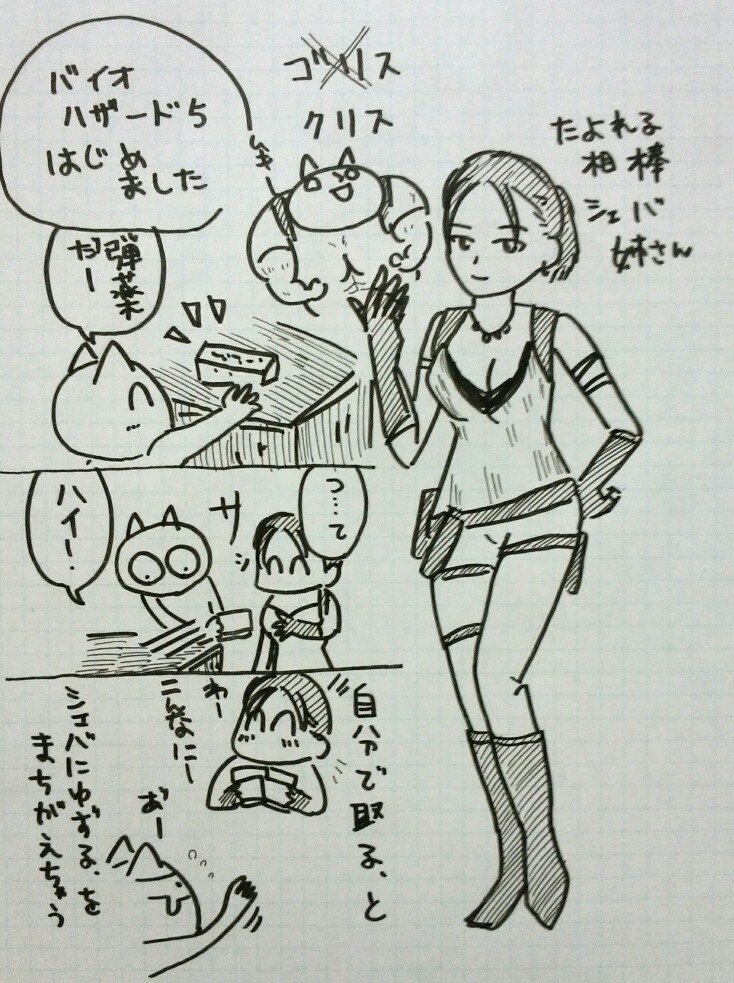 バイオ
ハザード5
はじめ
ました
ゴリス
クリス
むき
たよれる
相棒
シェバ
姉さん
弾薬
だー
つ…て
サッ
ハイー!
自分で取る、と
わー
こんなにー
シェバにゆずる、を
まちがえちゃう
あ゛ー